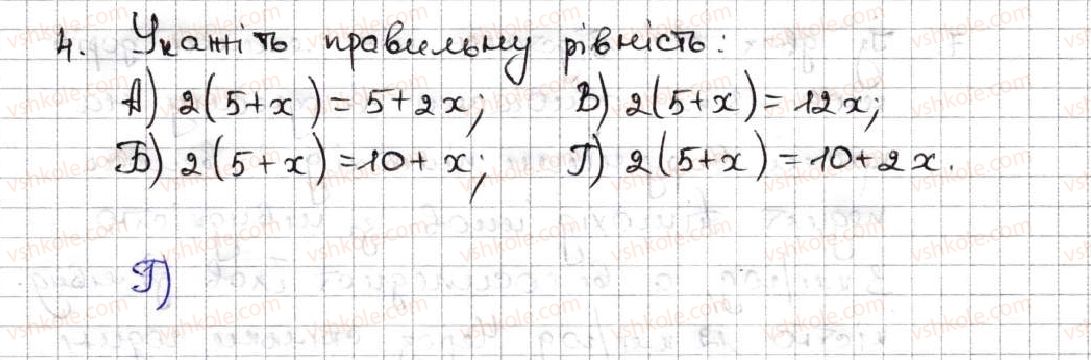 4. Укажіть правильну рівність:
А) 2(5+x)=5+2x; В) 2(5+x)=12x;
Б) 2(5+x)=10+x; Г) 2(5+x)=10+2x.
Г)